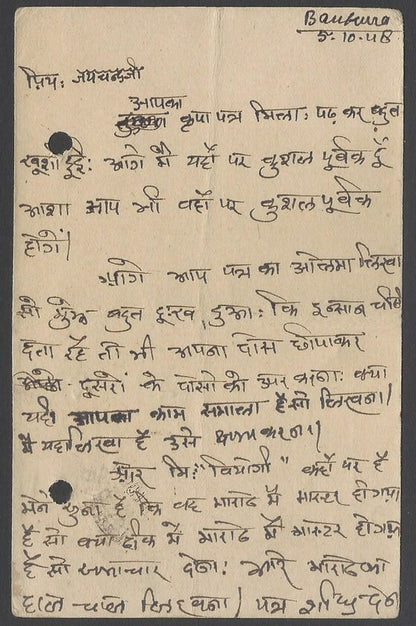 Bankura
5-10-48
प्रिय: जयचन्दजी
आपका
कृपा पत्र मिला: पढ़ कर बहुत
खुशी हुई: आगे मै यहाँ पर कुशल पूर्वक हूँ
आशा आप भी वहाँ पर कुशल पूर्वक
होगें।
आगे आप पत्र का लिखा
सो मुझे बहुत दुःख हुआ: कि इन्सान
देता है तो भी अपना दोस छीपाकर
दूसरों के दोसो को करना: क्या
यही आपका काम समाला है सो लिखना।
मै यहा लिखा है उसे क्षमा करना।
और मि: "वियोगी" कहाँ पर है
मेने सुना है कि वह मारोठ मै मास्टर होगया
है सो क्या ठीक मै मारोठ मै मास्टर होगया
है सो समाचार देना: और मारोठ का
हाल चाल लिखना। पत्र शीघ्र देना